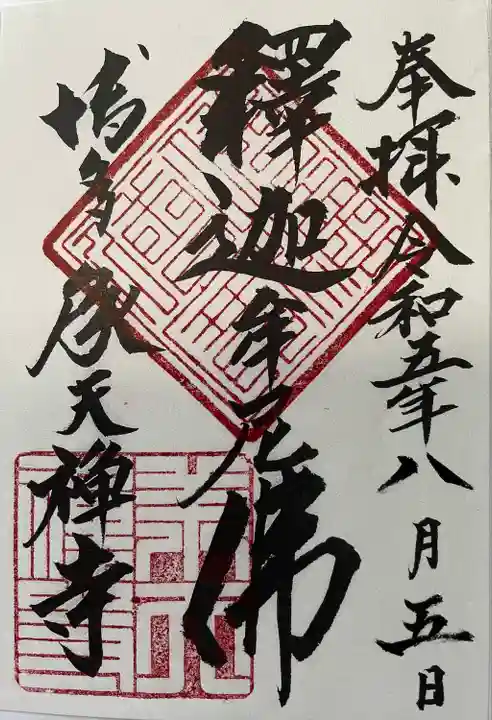 奉拝 令和五年八月五日
釋迦牟尼佛
博多承天禅寺
承天禅寺